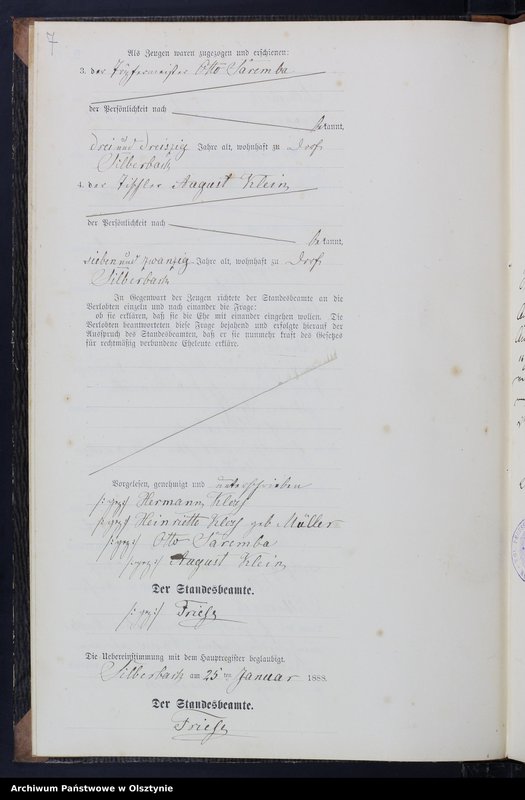 7
Als Zeugen waren zugezogen und erschienen:
3. der Töpfermeister Otto Saremba
der Persönlichkeit nach
bekannt,
drei und dreiszig Jahre alt, wohnhaft zu Dorf
Silberbach
4. der Tischler August Klein
der Persönlichkeit nach
bekannt,
sieben und zwanzig Jahre alt, wohnhaft zu Dorf
Silberbach
In Gegenwart der Zeugen richtete der Standesbeamte an die
Verlobten einzeln und nach einander die Frage:
ob sie erklären, daß sie die Ehe mit einander eingehen wollen. Die
Verlobten beantworteten diese Frage bejahend und erfolgte hierauf der
Ausspruch des Standesbeamten, daß er sie nunmehr kraft des Gesetzes
für rechtmäßig verbundene Eheleute erkläre.
Vorgelesen, genehmigt und unterschrieben
Hermann
Heinriette geb Müller
Otto Saremba
August Klein
Der Standesbeamte.
Friese
Die Uebereinstimmung mit dem Hauptregister beglaubigt.
Silberbach am 25ten Januar 1888.
Der Standesbeamte.
Friese
Archiwum Państwowe w Olsztynie